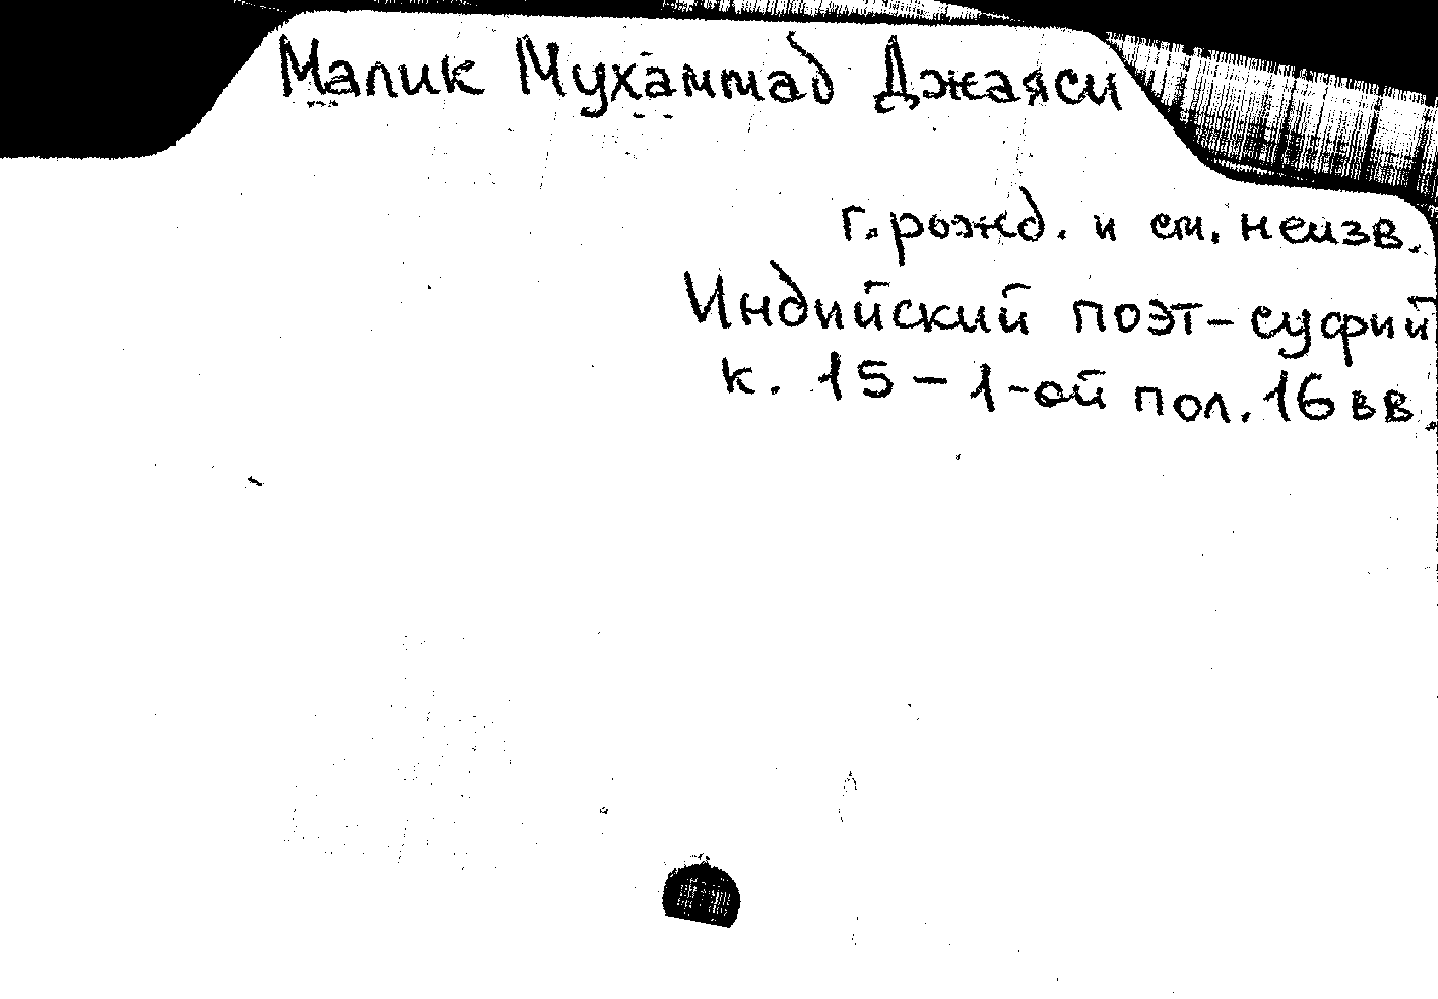 Малик Мухаммад Джаяси
г. рожд. и см. неизв.
Индийский поэт-суфий
к. 15 – 1-ой пол. 16 вв.